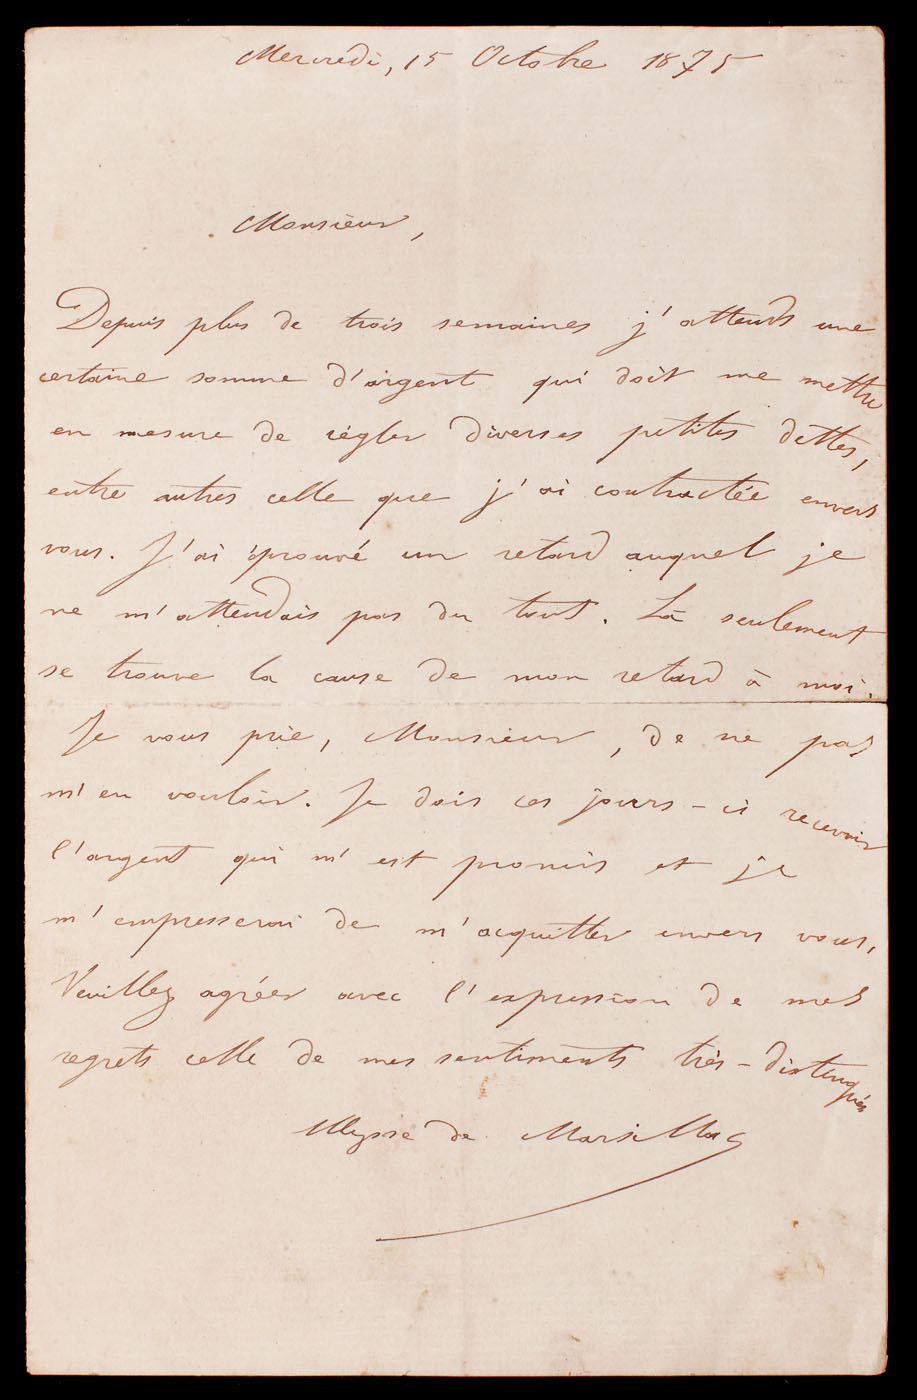 Mercredi, 15 Octobre 1875
Monsieur,
Depuis plus de trois semaines j'attends une
certaine somme d'argent qui doit me mettre
en mesure de régler diverses petites dettes,
entre autres celle que j'ai contractée envers
vous. J'ai éprouvé un retard auquel je
ne m'attendais pas du tout. Là seulement
se trouve la cause de mon retard à moi.
Je vous prie, Monsieur, de ne pas
m'en vouloir. Je dois ces jours-ci recevoir
l'argent qui m'est promis et je
m'empresserai de m'acquitter envers vous.
Veuillez agréer avec l'expression de mes
regrets celle de mes sentiments très-distingués
Ulysse de Marsillac